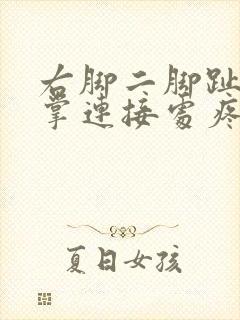 右脚二脚趾
掌連接處疼
夏日女孩